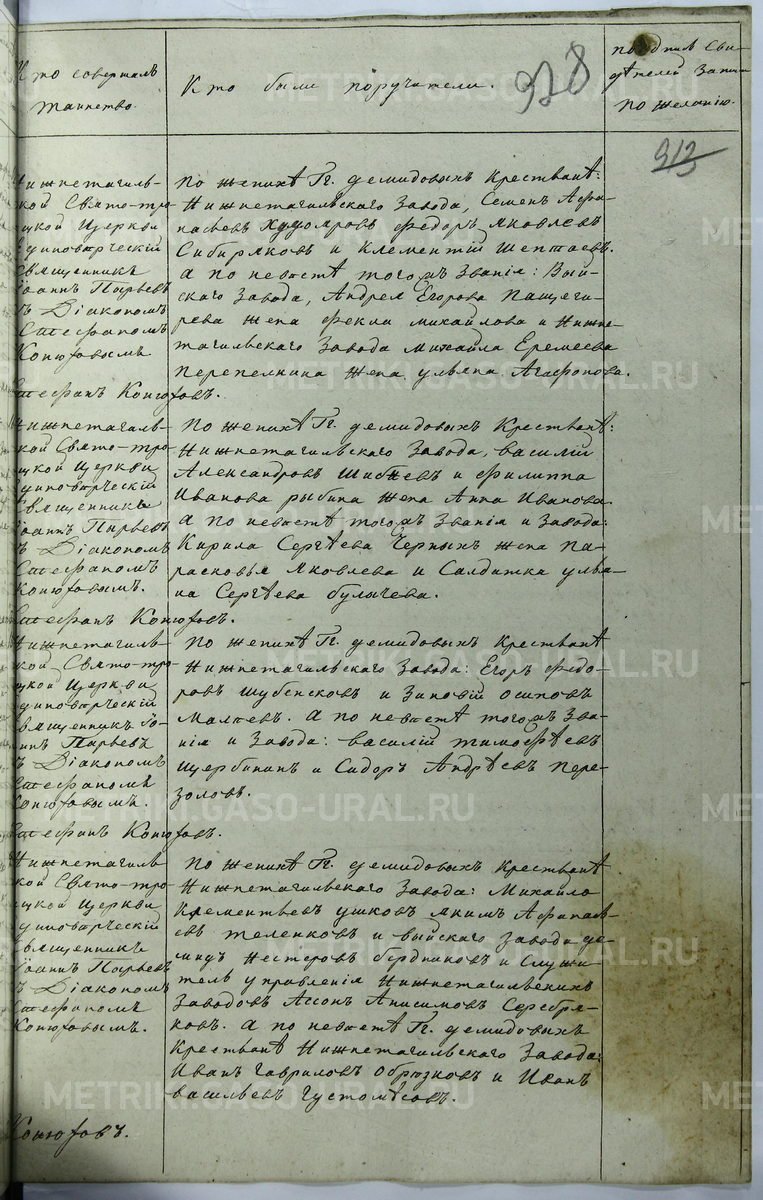 Кто совершалъ
таинство.
Кто были поручатели.
928
подпись сви-
дѣтелей записи
по желанію.
913
Нижнетагиль-
ской Свято-тро-
ицкой Церкви
Единовѣрческій
священникъ
Іоаннъ Пырьевъ
съ Діакономъ
Стефаномъ
Конюховымъ
По женихѣ Гг. Демидовыхъ крестьянѣ:
Нижнетагильскаго Завода, Семенъ Афа-
насьевъ Худояровъ Федоръ Яковлевъ
Сибиряковъ и Клементій Шептаевъ.
а по невѣстѣ тогожъ званія: Вый-
скаго Завода, Андрея Егорова Пащеги-
рева жена Фекла Михайлова и Нижне-
тагильскаго Завода Михайла Еремеева
Перепелкина жена Ульяна Агафонова.
Стефанъ Конюховъ.
Нижнетагиль-
ской Свято-тро-
ицкой Церкви
Единоверческій
священникъ
Іоаннъ Пырьевъ
съ Діакономъ
Стефаномъ
Конюховымъ.
По женихѣ Гг. Демидовыхъ крестьянѣ:
Нижнетагильскаго Завода, Василій
Александровъ Шибневъ и Филиппа
Иванова Рыбина жена Анна Иванова.
а по невѣстѣ тогожъ званія и завода:
Кирила Сергѣева Черныхъ жена Па-
расковья Яковлева и Салдатка улья-
на Сергѣева Булычева.
Стефанъ Конюховъ.
Нижнетагиль-
ской Свято-тро-
ицкой Церкви
Единоверческій
священникъ Іо-
аннъ Пырьевъ
съ Діакономъ
Стефаномъ
Конюховымъ.
По женихѣ Гг. Демидовыхъ крестьянѣ
Нижнетагильскаго Завода: Егоръ Федо-
ровъ Шубенсковъ и Зиновій Осиповъ
Малаевъ. А по невѣстѣ тогожъ зва-
нія и Завода: Василій Тимофѣевъ
Щербининъ и Сидоръ Андрѣевъ Пере-
золовъ.
Стефанъ Конюховъ.
Нижнетагиль-
ской Свято-тро-
ицкой Церкви
Единоверческій
священникъ
Іоаннъ Пырьевъ
съ Діакономъ
Стефаномъ
Конюховымъ.
По женихѣ Гг. Демидовыхъ крестьянѣ
Нижнетагильскаго Завода: Михайло
Клементьевъ Ушковъ Якимъ Афанась-
евъ Теленковъ и Выйскаго Завода Де-
мидъ Нестеровъ Бердниковъ и Служи-
тель управленія Нижнетагильскихъ
Заводовъ Ассонъ Анисимовъ Серебря-
ковъ. А по невестѣ Гг. Демидовыхъ
крестьянѣ Нижнетагильскаго Завода:
Иванъ Гавриловъ Обрюзковъ и Иванъ
Васильевъ Густомѣсовъ.
Конюховъ.
METRIKI.GASO-URAL.RU